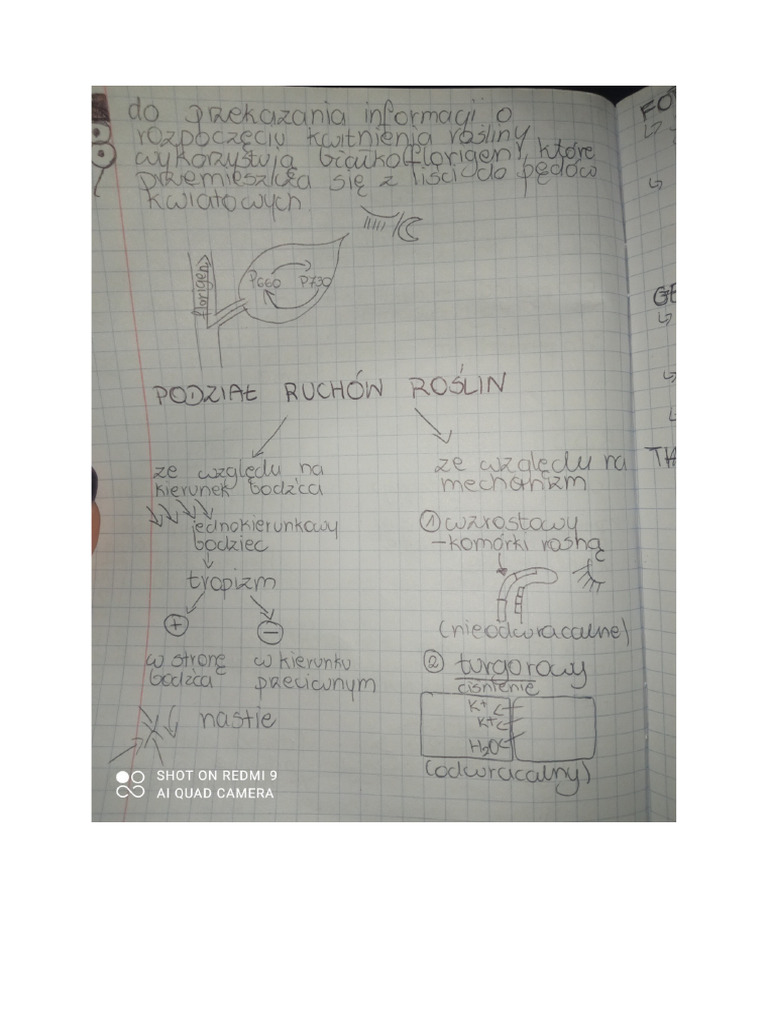 do przekazania informacji o
rozpoczęciu kwitnienia rośliny
wykorzystują białko(florigen), które
przemieszcza się z liści do pędów
kwiatowych.
florigen
P660 P730
PODZIAŁ RUCHÓW ROŚLIN
ze względu na
kierunek bodźca
jednokierunkowy
bodziec
tropizm
+
-
w stronę
bodźca
w kierunku
przeciwnym
nastie
ze względu na
mechanizm
1 wzrostowy
-komórki rosną
(nieodwracalne)
2 turgorowy
ciśnienie
K+
K+
H2O
(odwracalny)
FO
GE
TH
SHOT ON REDMI 9
AI QUAD CAMERA